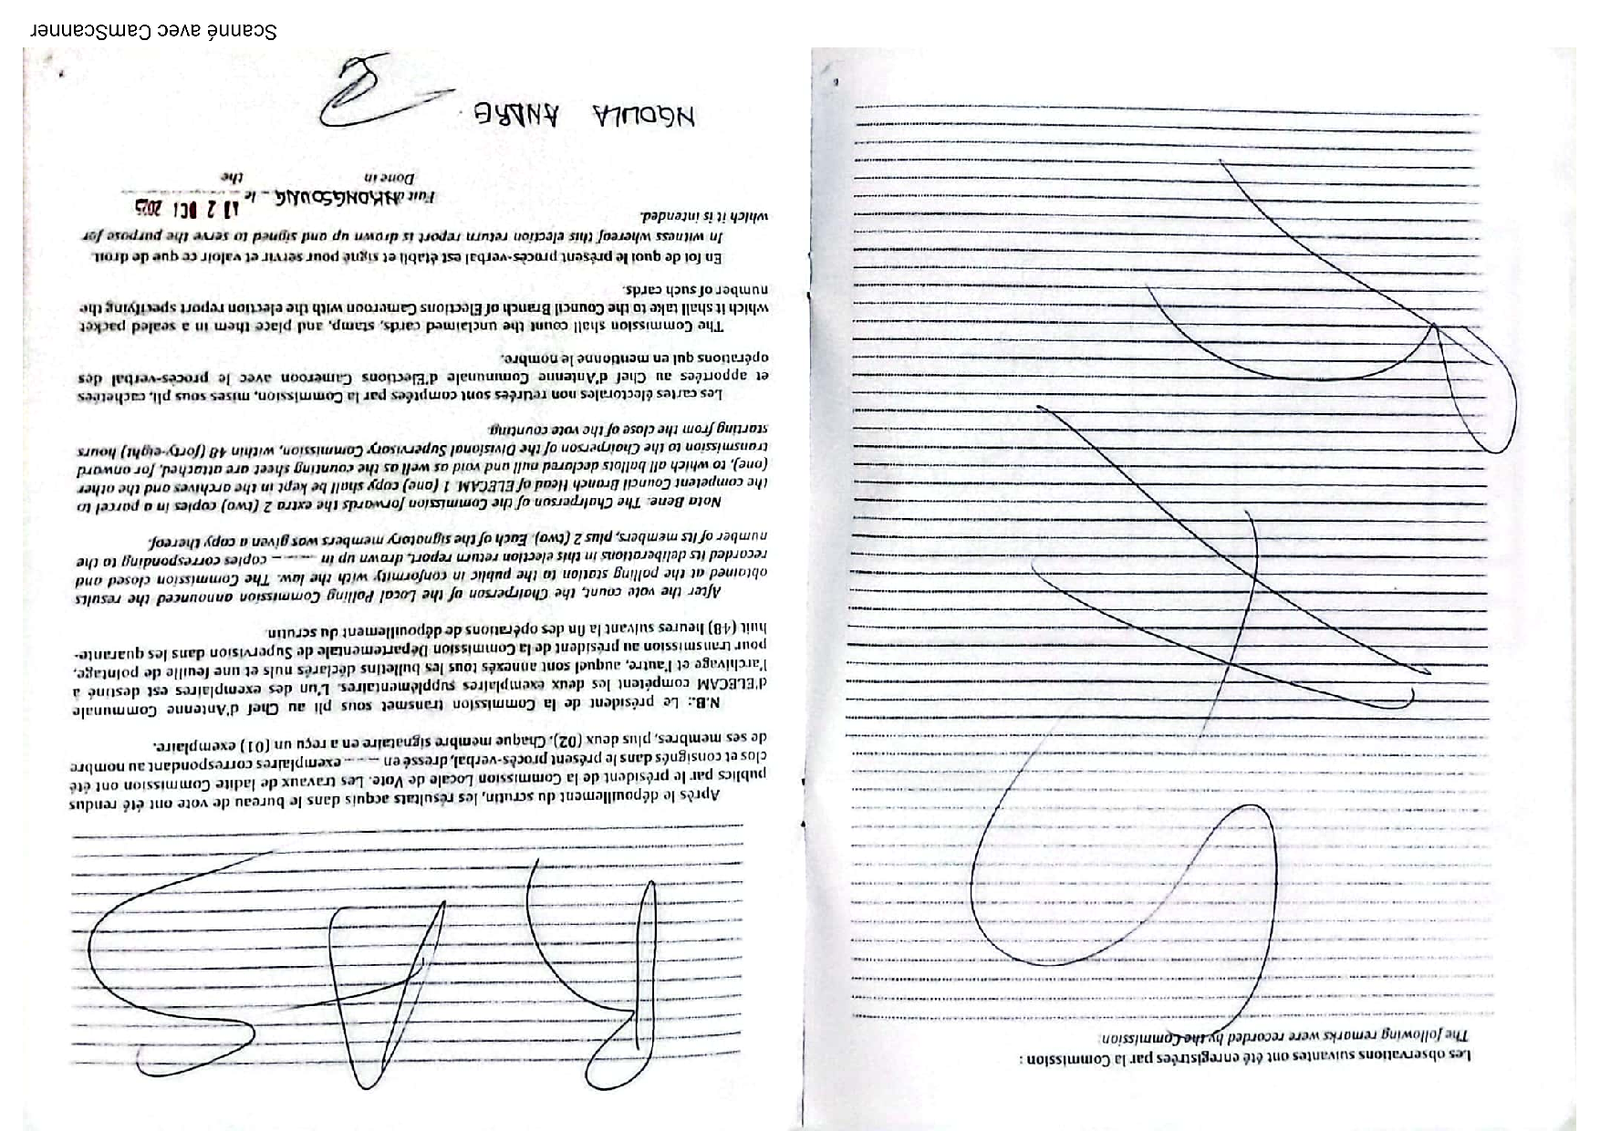 Les observations suivantes ont été enregistrées par la Commission :
The following remarks were recorded by the Commission:
Après le dépouillement du scrutin, les résultats acquis dans le bureau de vote ont été rendus
publics par le président de la Commission Locale de Vote. Les travaux de ladite Commission ont été
clos et consignés dans le présent procès-verbal, dressé en ---- exemplaires correspondant au nombre
de ses membres, plus deux (02). Chaque membre signataire en a reçu un (01) exemplaire.
N.B.: Le président de la Commission transmet sous pli au Chef d'Antenne Communale
d'ELECAM compétent les deux exemplaires supplémentaires. L'un des exemplaires est destiné à
l'archivage et l'autre, auquel sont annexés tous les bulletins déclarés nuls et une feuille de pointage,
pour transmission au président de la Commission Départementale de Supervision dans les quarante-
huit (48) heures suivant la fin des opérations de dépouillement du scrutin.
After the vote count, the Chairperson of the Local Polling Commission announced the results
obtained at the polling station to the public in conformity with the law. The Commission closed and
recorded its deliberations in this election return report, drawn up in ---- copies corresponding to the
number of its members, plus 2 (two). Each of the signatory members was given a copy thereof.
Nota Bene. The Chairperson of the Commission forwards the extra 2 (two) copies in a parcel to
the competent Council Branch Head of ELECAM. 1 (one) copy shall be kept in the archives and the other
(one), to which all ballots declared null and void as well as the counting sheet are attached, for onward
transmission to the Chairperson of the Divisional Supervisory Commission, within 48 (forty-eight) hours
starting from the close of the vote counting.
Les cartes électorales non retirées sont comptées par la Commission, mises sous pli, cachetées
et apportées au Chef d'Antenne Communale d'Elections Cameroon avec le procès-verbal des
opérations qui en mentionne le nombre.
The Commission shall count the unclaimed cards, stamp, and place them in a sealed packet
which it shall take to the Council Branch of Elections Cameroon with the election report specifying the
number of such cards.
En foi de quoi le présent procès-verbal est établi et signé pour servir et valoir ce que de droit.
In witness whereof this election return report is drawn up and signed to serve the purpose for
which it is intended.
Fait à NKONGSOUNG le 12 OCT 2025
Done in the
NGOULA ANDRE
Scanné avec CamScanner